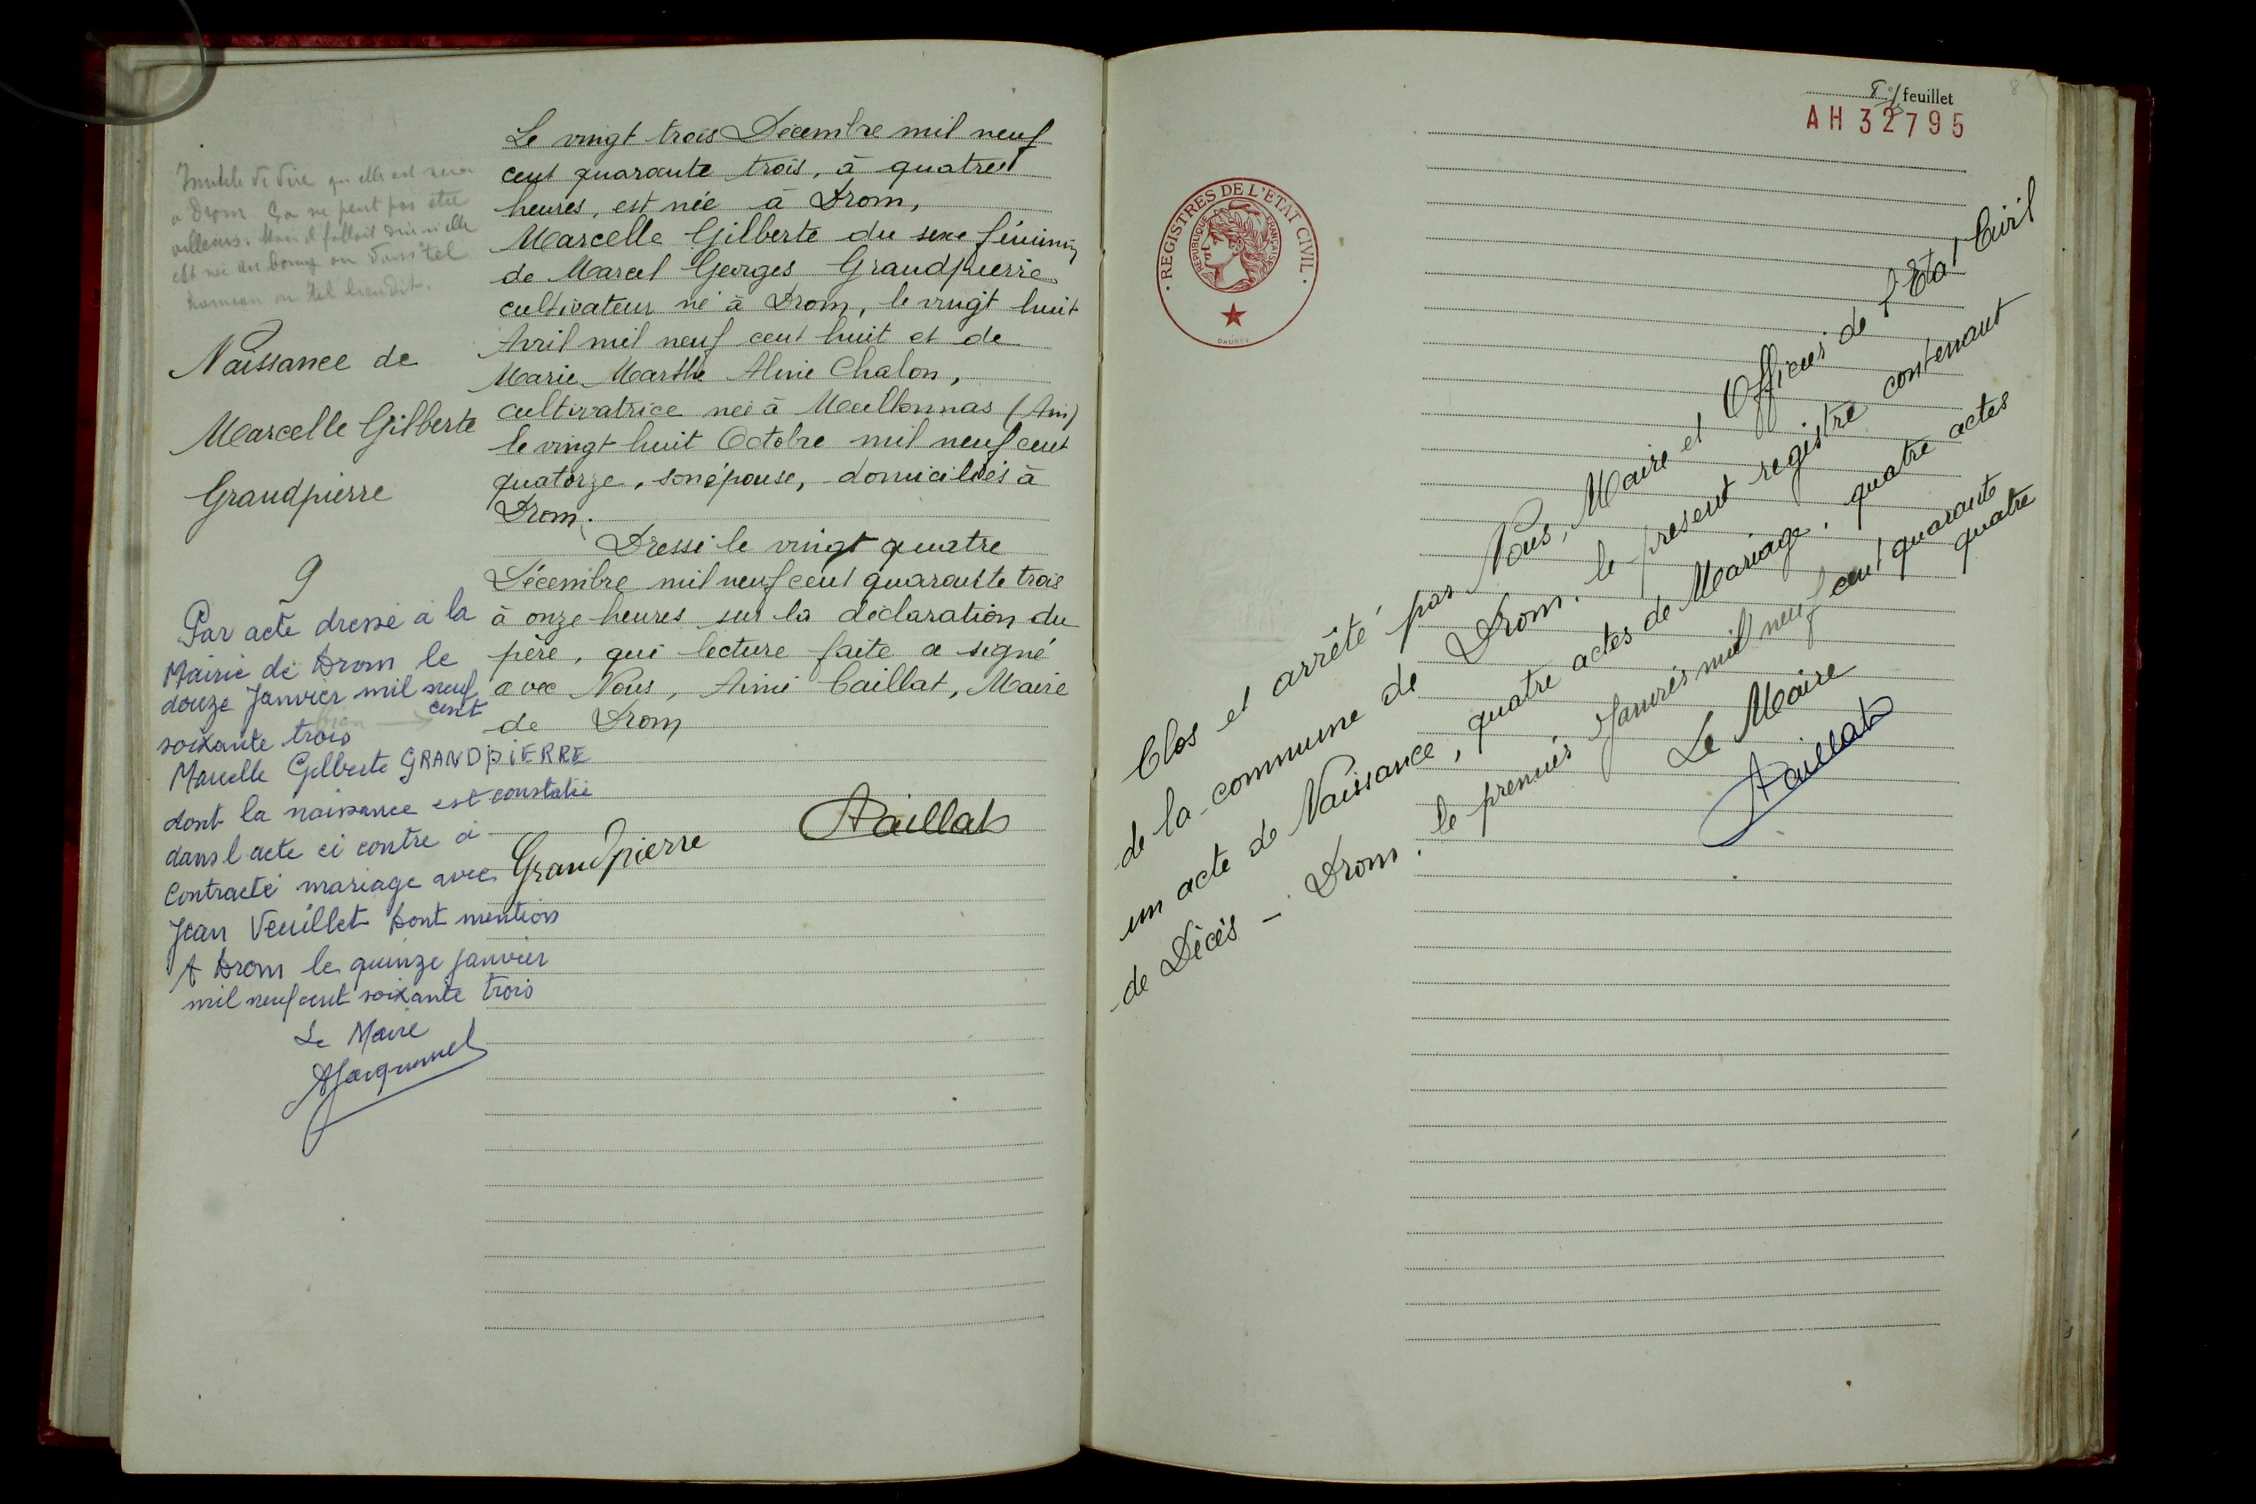 Inutile de dire qu'elle est née
a Drom Ça ne peut pas être
ailleurs. Mais il fallait dire si elle
est née au bourg ou dans tel
hameau ou tel lieudit.
Naissance de
Marcelle Gilberte
Grandpierre
9
Par acte dressé à la
Mairie de Drom le
douze Janvier mil neuf
cent
soixante trois
Marcelle Gilberte GRANDPIERRE
dont la naissance est constatée
dans l acte ci contre a
Contracté mariage avec
Jean Veuillet Dont mention
A Drom le quinze janvier
mil neuf cent soixante trois
Le Maire
Le vingt trois Décembre mil neuf
cent quarante trois, à quatre
heures, est née à Drom,
Marcelle Gilberte du sexe féminin
de Marcel Georges Grandpierre
cultivateur né à Drom, le vingt huit
Avril mil neuf cent huit et de
Marie Marthe Aline Chalon,
cultivatrice née à Meillonnas (Ain)
le vingt huit Octobre mil neuf cent
quatorze, son épouse, domiciliés à
Drom.
Dressé le vingt quatre
Décembre mil neuf cent quarante trois
à onze heures sur la déclaration du
père, qui lecture faite a signé
avec Nous, Aimé Caillat, Maire
de Drom
Grandpierre
ACaillat
feuillet
AH 32795
8
REGISTRES DE L'ETAT CIVIL
REPUBLIQUE FRANÇAISE
Clos et arrêté par Nous, Maire et Officier de l'Etat Civil
de la commune de Drom, le présent registre contenant
un acte de Naissance, quatre actes de Mariage, quatre actes
de Décès - Drom. le premier Janvier mil neuf cent quarante
quatre
Le Maire
ACaillat